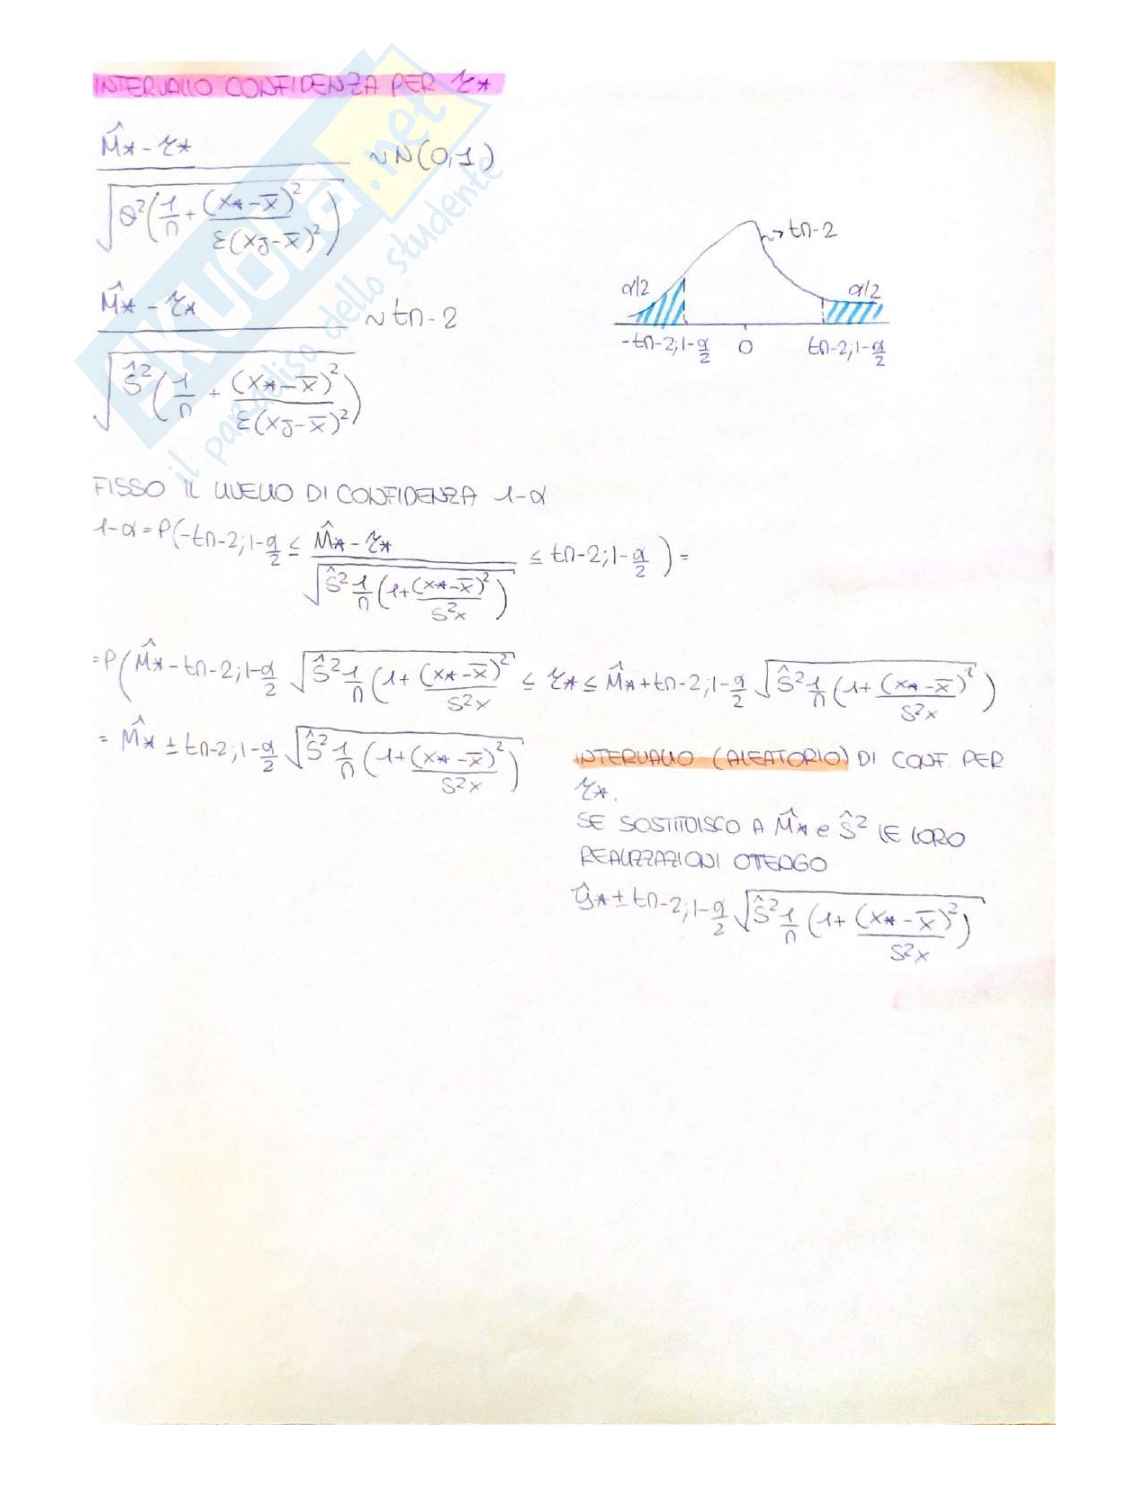 INTERVALLO CONFIDENZA PER μ*
M̂* - μ* / √(σ²(1/n + (x* - x̄)² / Σ(xj - x̄)²)) ~ N(0,1)
M̂* - μ* / √(Ŝ²(1/n + (x* - x̄)² / Σ(xj - x̄)²)) ~ tn-2
~> tn-2
α/2 α/2
-tn-2,1-α/2 0 tn-2,1-α/2
FISSO IL LIVELLO DI CONFIDENZA 1-α
1-α = P(-tn-2;1-α/2 ≤ M̂* - μ* / √(Ŝ² 1/n (1 + (x* - x̄)² / S²x)) ≤ tn-2;1-α/2) =
= P(M̂* - tn-2;1-α/2 √(Ŝ² 1/n (1 + (x* - x̄)² / S²x)) ≤ μ* ≤ M̂* + tn-2;1-α/2 √(Ŝ² 1/n (1 + (x* - x̄)² / S²x))
= M̂* ± tn-2;1-α/2 √(Ŝ² 1/n (1 + (x* - x̄)² / S²x))
INTERVALLO (ALEATORIO) DI CONF. PER
μ*.
SE SOSTITUISCO A M̂* e Ŝ² LE LORO
REALIZZAZIONI OTTENGO
ŷ* ± tn-2;1-α/2 √(ŝ² 1/n (1 + (x* - x̄)² / S²x))
SKUOLA.net
il paradiso dello studente